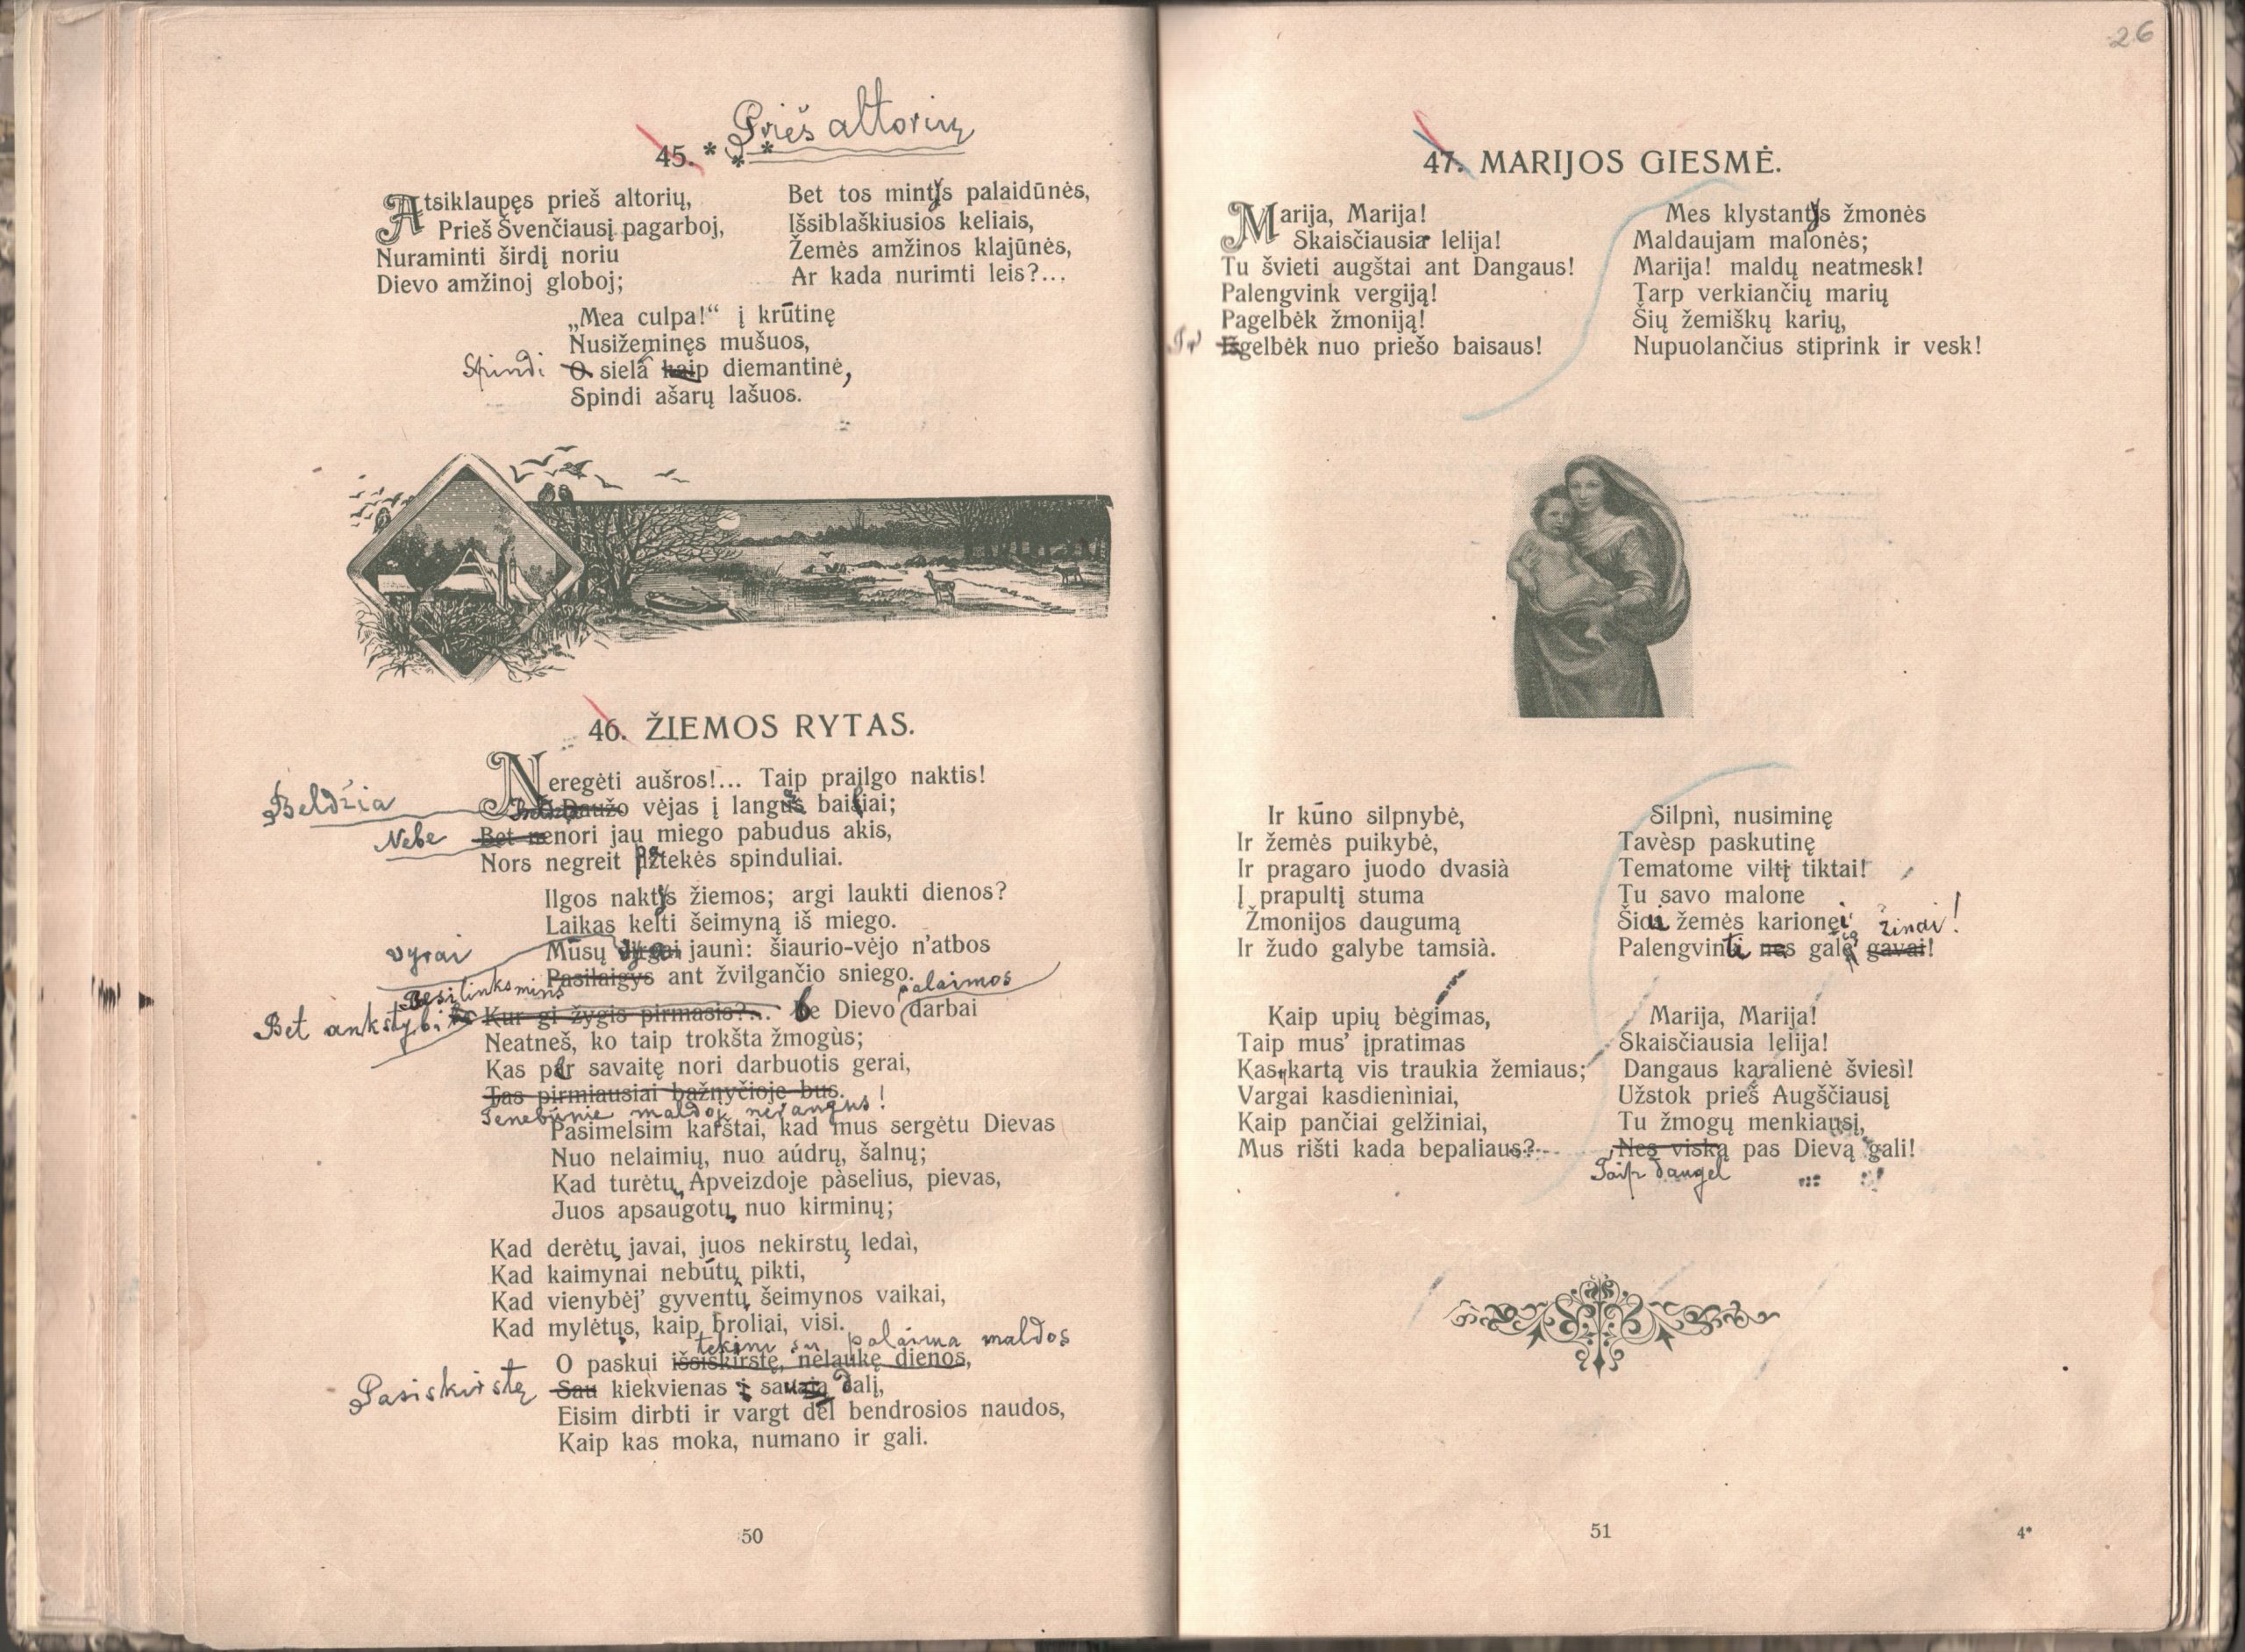 26
Prieš altorių
45. * * *
Atsiklaupęs prieš altorių,
Prieš Švenčiausį pagarboj,
Nuraminti širdį noriu
Dievo amžinoj globoj;
Bet tos mintys palaidūnės,
Išsiblaškiusios keliais,
Žemės amžinos klajūnės,
Ar kada nurimti leis?...
„Mea culpa!“ į krūtinę
Nusižeminęs mušuos,
Spindi O siela kaip diemantinė,
Spindi ašarų lašuos.
46. ŽIEMOS RYTAS.
Neregėti aušros!... Taip prailgo naktis!
Beldžia Daužo vėjas į langus baisiai;
Nebe Bet nenori jau miego pabudus akis,
Nors negreit patekės spinduliai.
Ilgos naktys žiemos; argi laukti dienos?
Laikas kelti šeimyną iš miego.
vyrai
Mūsų jauni: šiaurio-vėjo n'atbos
Pasilaigys ant žvilgančio sniego.
Besilinksmins palaimos
Bet ankstybi Kur gi žygis pirmasis?... be Dievo darbai
Neatneš, ko taip trokšta žmogùs;
Kas per savaitę nori darbuotis gerai,
Tas pirmiausiai bažnyčioje bus.
Tenebūnie maldoj nerangus!
Pasimelsim karštai, kad mus sergėtu Dievas
Nuo nelaimių, nuo aúdrų, šalnų;
Kad turėtų Apveizdoje pàselius, pievas,
Juos apsaugotų nuo kirminų;
Kad derėtų javai, juos nekirstų ledaì,
Kad kaimynai nebūtų pikti,
Kad vienybėj' gyventų šeimynos vaikai,
Kad mylėtųs, kaip broliai, visi.
tekini su palaima maldos
O paskui išsiskirstę, nelaukę dienos,
Pasiskirstę Sau kiekvienas į dalį,
Eisim dirbti ir vargt dėl bendrosios naudos,
Kaip kas moka, numano ir gali.
50
47. MARIJOS GIESMĖ.
Marija, Marija!
Skaisčiausia lelija!
Tu švieti augštai ant Dangaus!
Palengvink vergiją!
Pagelbėk žmoniją!
Ir Išgelbėk nuo priešo baisaus!
Mes klystantys žmonės
Maldaujam malonės;
Marija! maldų neatmesk!
Tarp verkiančių marių
Šių žemiškų karių,
Nupuolančius stiprink ir vesk!
Ir kūno silpnybė,
Ir žemės puikybė,
Ir pragaro juodo dvasià
Į prapultį stuma
Žmonijos daugumą
Ir žudo galybe tamsià.
Silpnì, nusiminę
Tavèsp paskutinę
Tematome viltį tiktai!
Tu savo malone
Šioi žemės karionei
žinai!
Palengvinti nes galę gavai!
Kaip upių bėgimas,
Taip mus' įpratimas
Kas kartą vis traukia žemiaus;
Vargai kasdieniniai,
Kaip pančiai gelžiniai,
Mus rišti kada bepaliaus?...
Marija, Marija!
Skaisčiausia lelija!
Dangaus karalienė šviesì!
Užstok prieš Augščiausį
Tu žmogų menkiausį,
Nes viską pas Dievą gali!
Taip daugel
51
4*